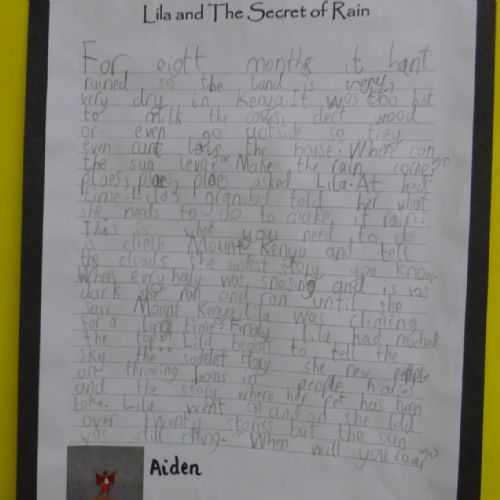 Lila and The Secret of Rain
For eight months it hant
rained so the land is very,
very dry in Kenya. It was too hot
to milk the cows, clect wood
or even go yotside so they
even cant leve the house. "When can
the sun leve?" "Make the rain come?"
plaes, plaes, plaes asked Lila. At bed
time. Lila's grandad told her what
she needs to do to make it rain.
This is what you need to do
is climb Mount Kenya and tell
the clouds the sadest story you know.
When evrybody was snosing and is was
dark she ran and ran until she
saw Mount Kenya. Lila was climing
for a long time. Finaly Lila had reached
the top. Lila began to tell the
sky the sadelst story she new people
are throwing in people houses
and the story where her pet has been
take. Lila went on and on she told
over twenty stories but the sun
was still "When will you rain?"
Aiden